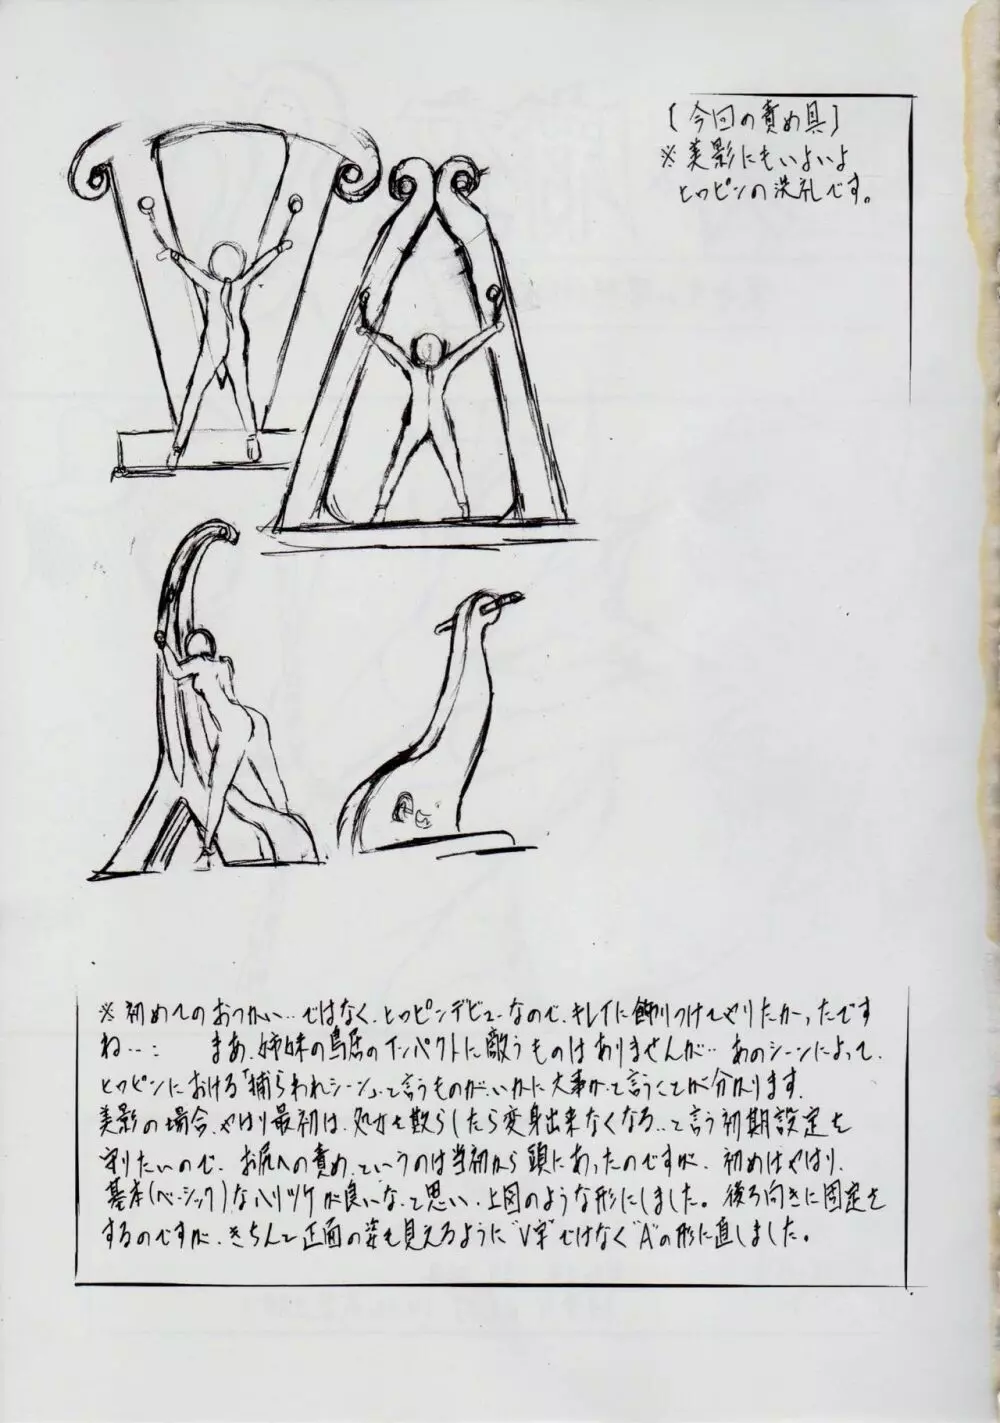 [今回の責め具]
※美影にもいよいよ
ヒロピンの洗礼です。
※初めてのおつかい…ではなく、ヒロピンデビューなので、キレイに飾りつけてやりたかったです
ね…： まあ、姉妹の鳥居のインパクトに敵うものはありませんが…あのシーンによって、
ヒロピンにおける「捕らわれシーン」と言うものが、いかに大事かと言うことが分かります。
美影の場合、やはり最初は、処女を散らしたら変身出来なくなる…と言う初期設定を
守りたいので、お尻への責め、というのは当初から頭にあったのですが、初めはやはり、
基本(ベーシック)なハリツケが良いな、と思い、上図のような形にしました。後ろ向きに固定を
するのですが、きちんと正面の姿も見えるように"V字"ではなく"A"の形に直しました。